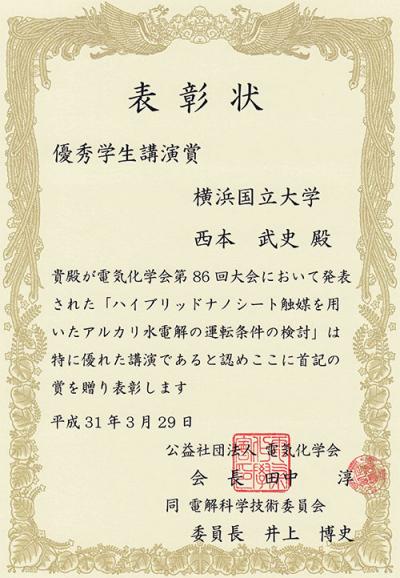 表彰状
優秀学生講演賞
横浜国立大学
西本 武史 殿
貴殿が電気化学会第86回大会において発表
された「ハイブリッドナノシート触媒を用
いたアルカリ水電解の運転条件の検討」は
特に優れた講演であると認めここに首記の
賞を贈り表彰します
平成31年3月29日
公益社団法人 電気化学会
会 長 田中 淳
同 電解科学技術委員会
委員長 井上 博史